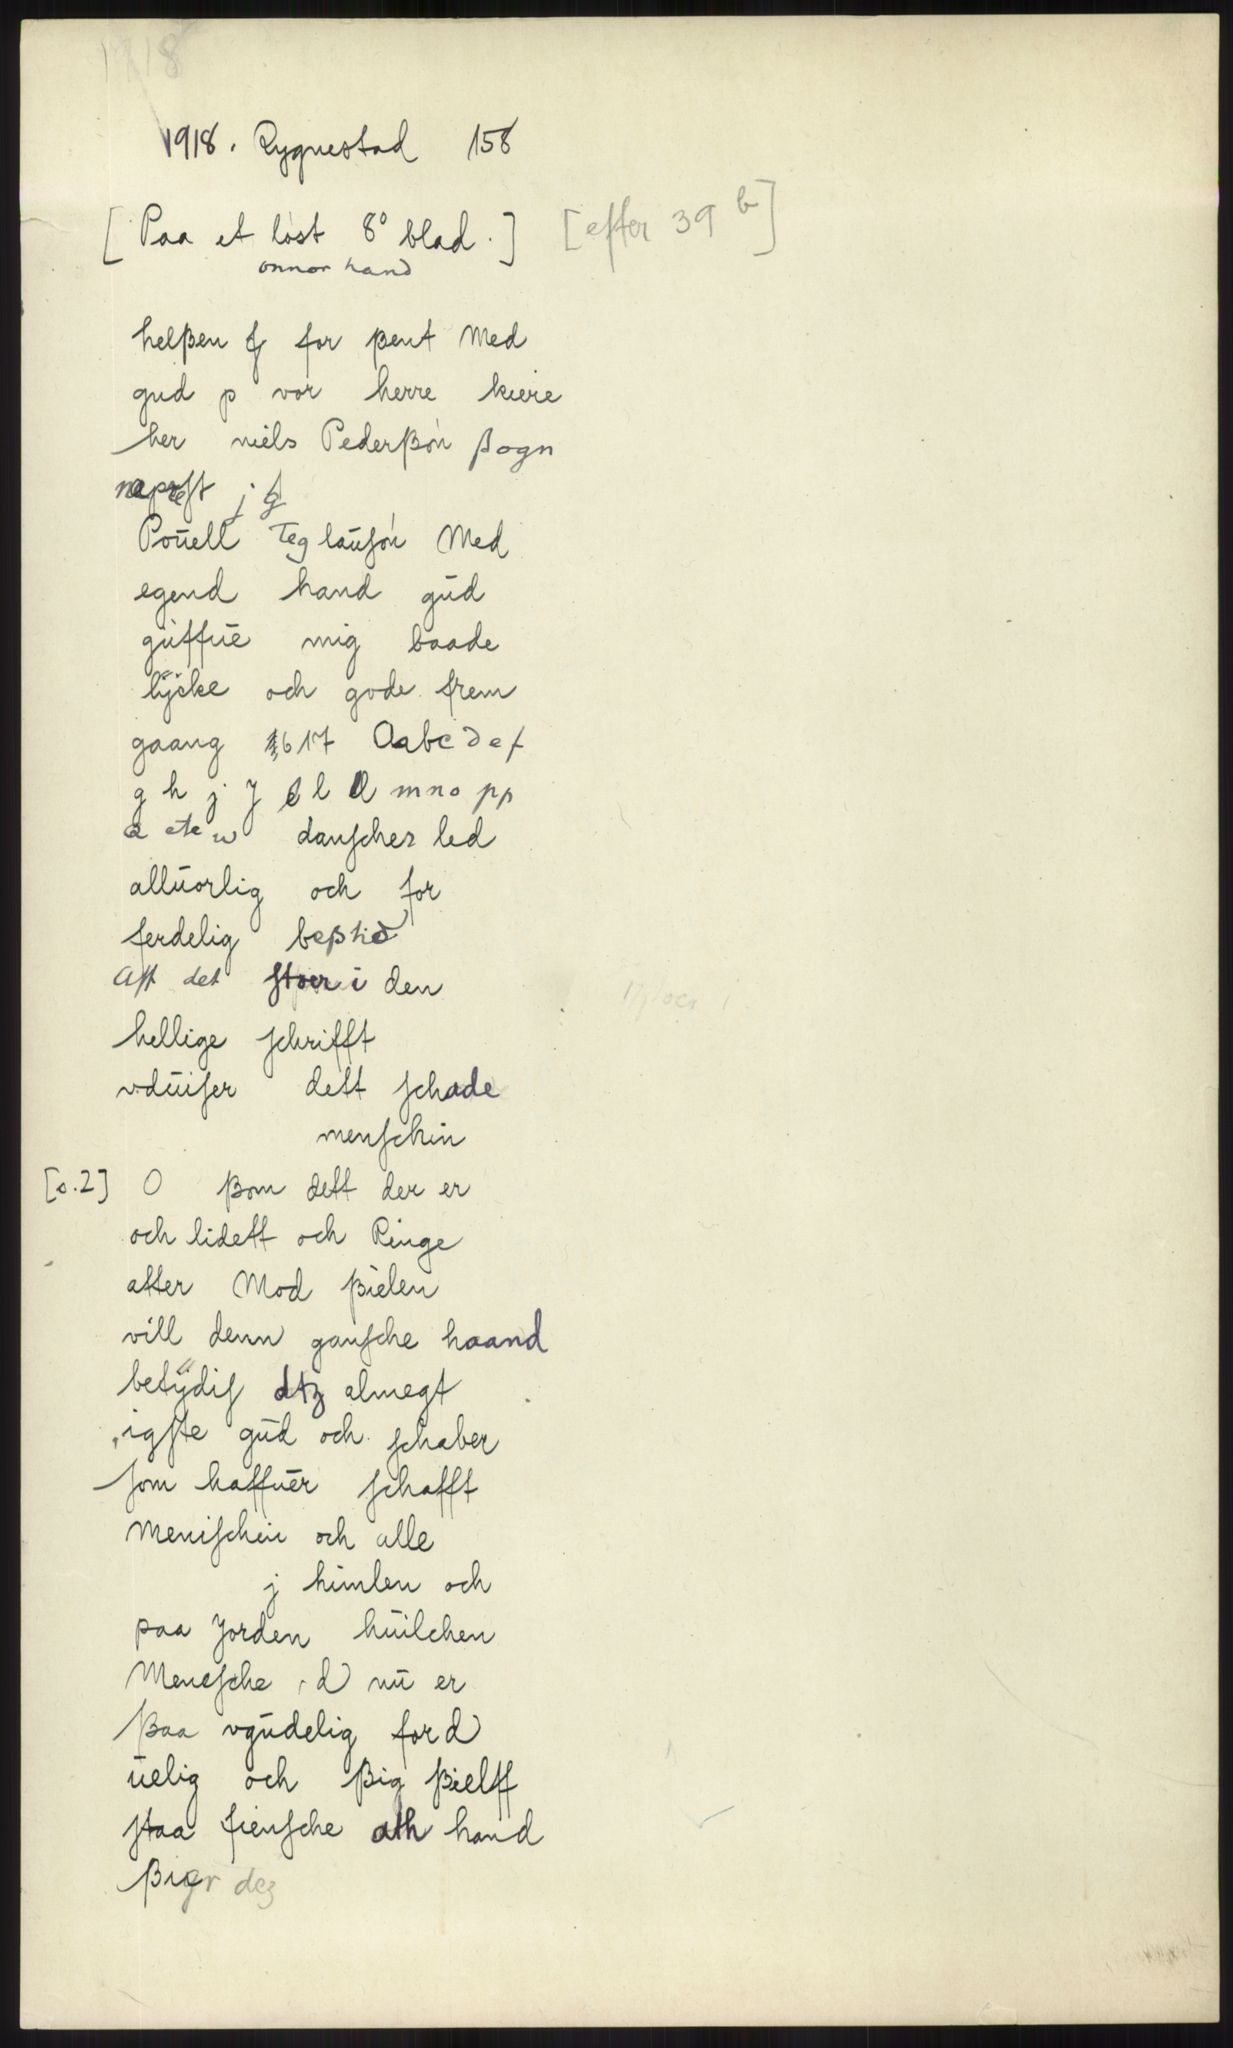 1918
1918. Rygnestad 158
[Paa et løst 8° blad.] [efter 39 b]
onnor hand
helßen for ßent Med
gud p vor herre kiere
her niels Pederßøn ßogn
j
Pouell Teglauføn Med
egend hand gud
guffue mig baade
lycke och gode frem
gaang 1617 Aabcdef
g h j J l l mno pp
danscher led
alluorlig och for
ferdelig beßtid
Aft det stoer i den
hellige schrifft
vduiser dett schade
menschin
[s. 2] O ßom dett der er
och lidett och Ringe
atter Mod ßielen
vill denn gansche haand
betydis dtz almegt
igste gud och schaber
som haffuer schafft
Menischin och alle
j himlen och
paa Jorden huilchen
Menesche d nu er
ßaa vgudelig ford
uelig och ßig ßielff
staa fiensche ath hand
dez